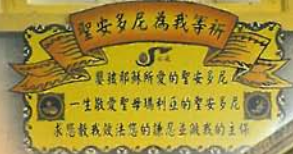 聖安多尼為我等祈
嬰孩耶穌所愛的聖安多尼
一生敬愛聖母瑪利亞的聖安多尼
求您教我效法您的謙忍並做我的主保